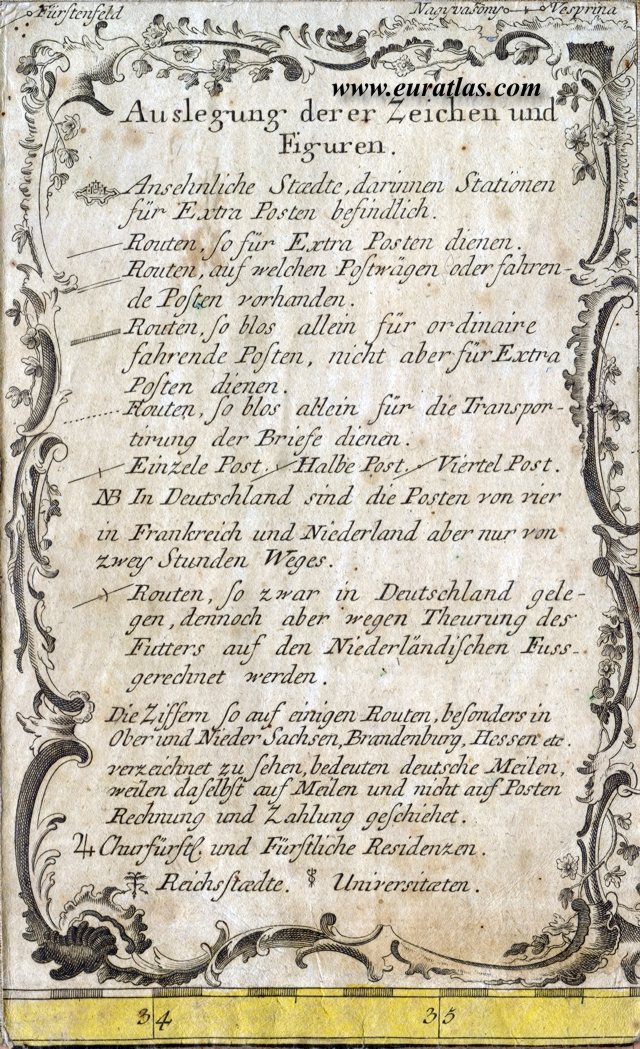 Fürstenfeld
Nagyvasony Vesprina
www.euratlas.com
Auslegung derer Zeichen und
Figuren.
Ansehnliche Stædte, darinnen Stationen
für Extra Posten befindlich.
Routen, so für Extra Posten dienen.
Routen, auf welchen Postwägen oder fahren-
de Posten vorhanden.
Routen, so blos allein für ordinaire
fahrende Posten, nicht aber für Extra
Posten dienen.
Routen, so blos allein für die Transpor-
tirung der Briefe dienen.
Einzele Post. Halbe Post. Viertel Post.
NB In Deutschland sind die Posten von vier
in Frankreich und Niederland aber nur von
zwey Stunden Weges.
Routen, so zwar in Deutschland gele-
gen, dennoch aber wegen Theurung des
Futters auf den Niederländischen Fuss-
gerechnet werden.
Die Ziffern so auf einigen Routen, besonders in
Ober und Nieder Sachsen, Brandenburg, Hessen etc.
verzeichnet zu sehen, bedeuten deutsche Meilen,
weilen daselbst auf Meilen und nicht auf Posten
Rechnung und Zahlung geschiehet.
♃ Churfürstl. und Fürstliche Residenzen.
Reichsstædte. Universitæten.
34 35